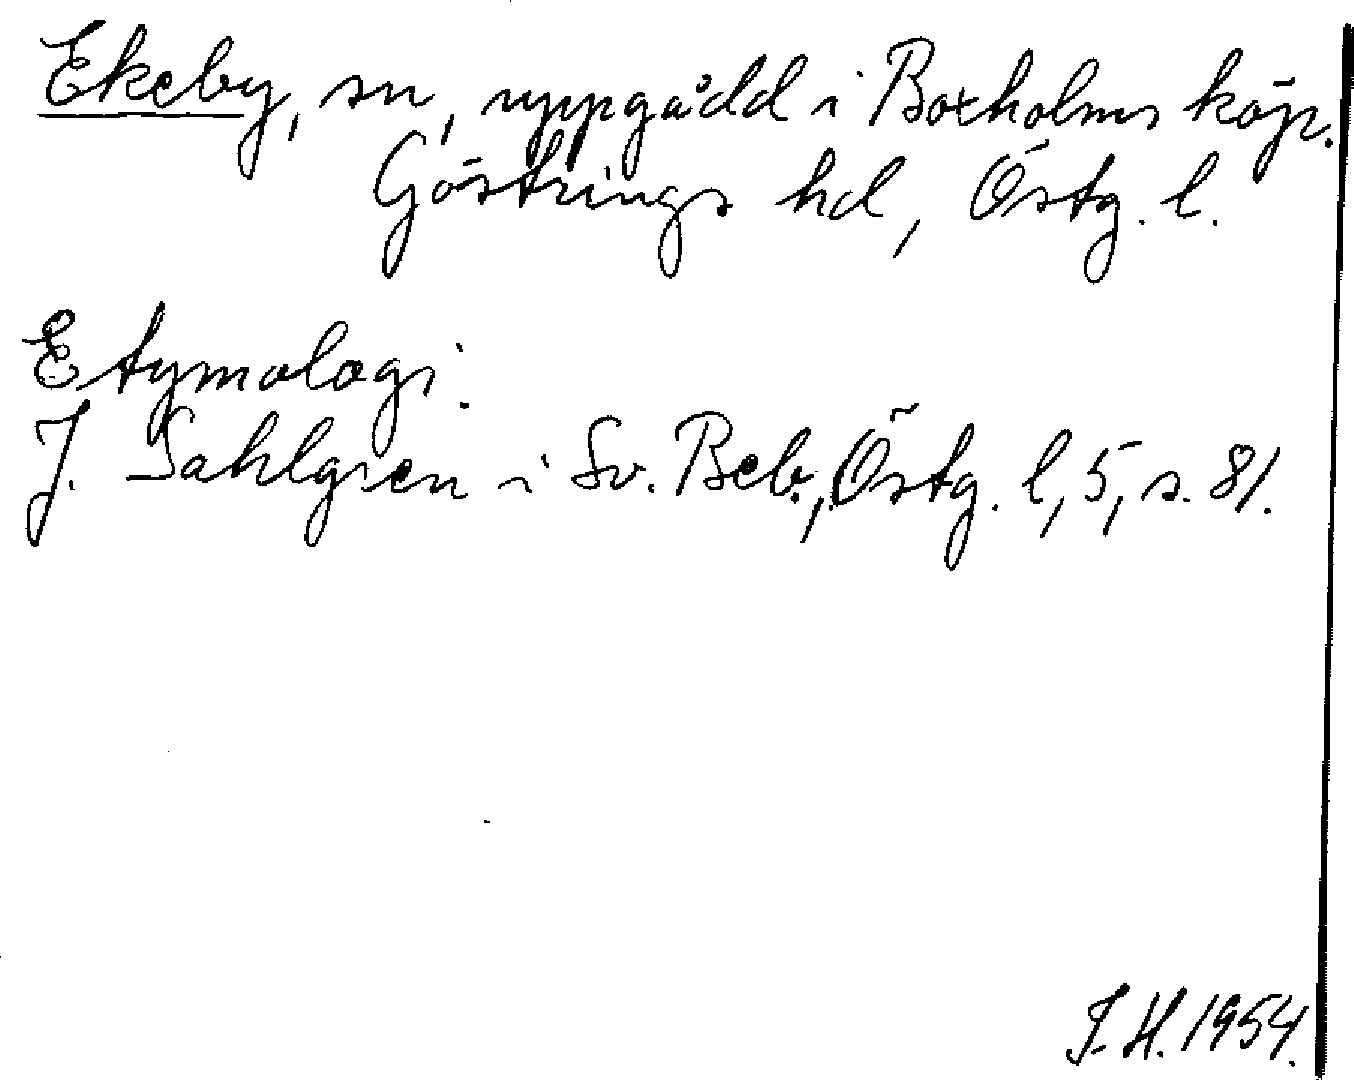 Ekeby, sn, uppgådd i Boxholms köp.
Göstrings hd, Östg. l.
Etymologi.
J. Sahlgren i Sv. Beb., Östg. l, 5, s. 81.
J. H. 1954.